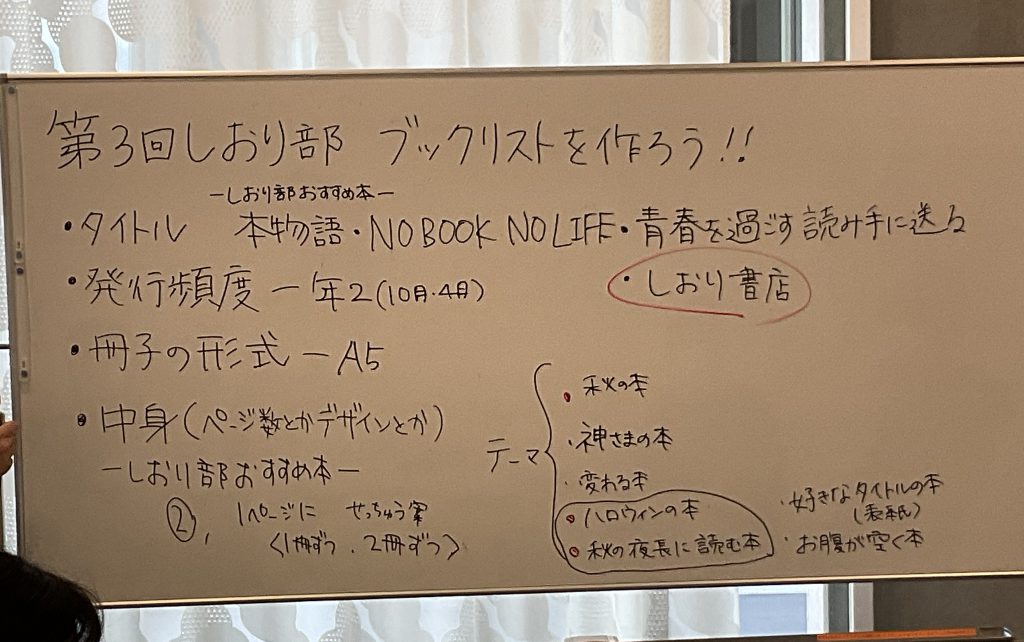 第3回しおり部 ブックリストを作ろう!!
ーしおり部おすすめ本ー
・タイトル 本物語・NO BOOK NO LIFE・青春を過ごす読み手に送る
・しおり書店
・発行頻度ー年2(10月・4月)
・冊子の形式ーA5
・中身(ページ数とかデザインとか)
ーしおり部おすすめ本ー
②, 1ページに せっちゅう案
〈1冊ずつ、2冊ずつ〉
テーマ
・秋の本
・神さまの本
・変われる本
・ハロウィンの本
・秋の夜長に読む本
・好きなタイトルの本
(表紙)
・お腹が空く本